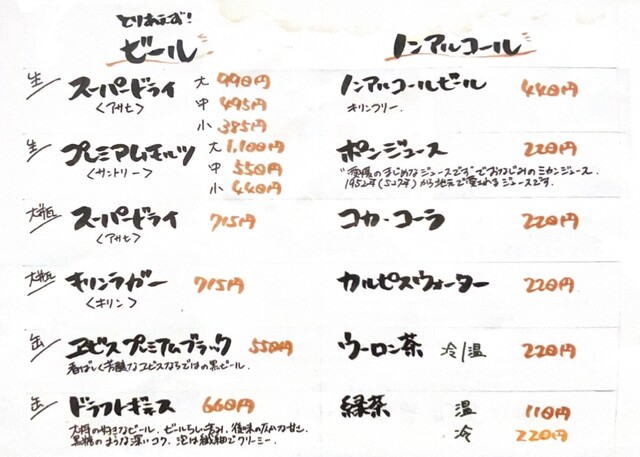 とりあえず!
ビール
生 スーパードライ 大 990円
<アサヒ> 中 495円
小 385円
生 プレミアムモルツ 大 1,100円
<サントリー> 中 550円
小 440円
大瓶 スーパードライ 715円
<アサヒ>
大瓶 キリンラガー 715円
<キリン>
缶 ヱビスプレミアムブラック 550円
香ばしく芳醇なヱビスならではの黒ビール。
缶 ドラフトギネス 660円
大将の好きなビール。ビールらしい苦み、後味の広がる甘み。
黒糖のような深いコク。泡は繊細でクリーミー。
ノンアルコール
ノンアルコールビール 440円
キリンフリー。
ポンジュース 220円
"愛媛のまじめなジュースです"でおなじみのミカンジュース。
1952年(S27年)から地元で愛されるジュースです。
コカ・コーラ 220円
カルピスウォーター 220円
ウーロン茶 冷/温 220円
緑茶 温 110円
冷 220円